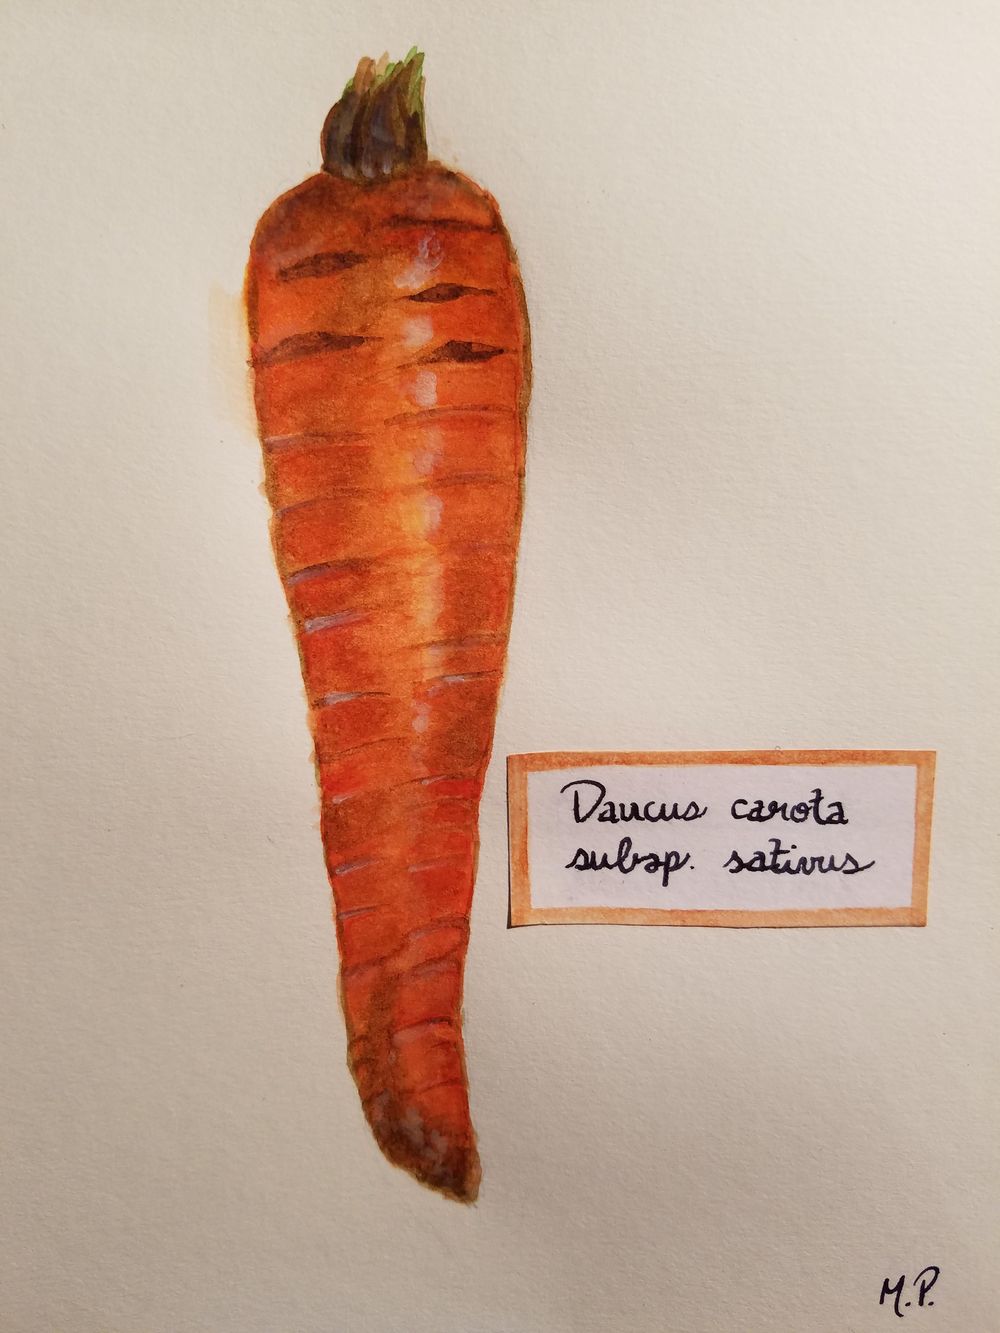 Daucus carota
subsp. sativus
M.P.